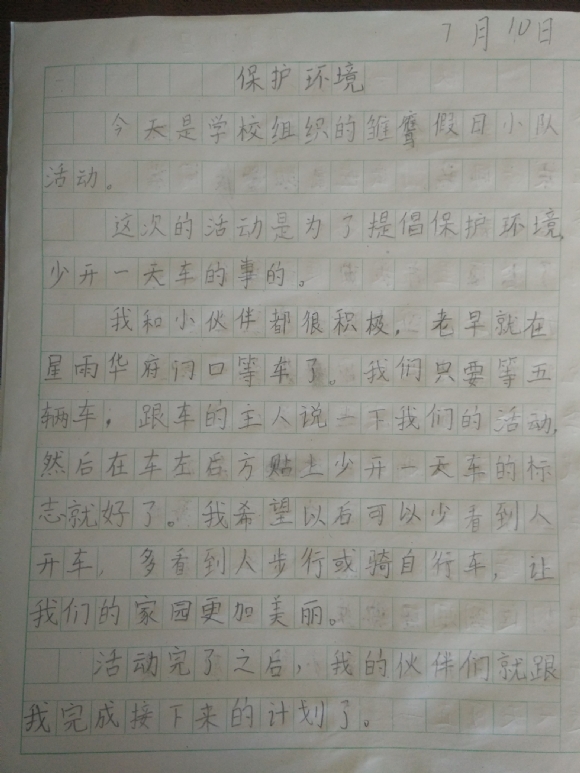 7月10日
保护环境
今天是学校组织的雏鹰假日小队
活动。
这次的活动是为了提倡保护环境,
少开一天车的事的。
我和小伙伴都很积极，老早就在
星雨华府门口等车了。我们只要等五
辆车，跟车的主人说一下我们的活动,
然后在车左后方贴上少开一天车的标
志就好了。我希望以后可以少看到人
开车，多看到人步行或骑自行车，让
我们的家园更加美丽。
活动完了之后，我的伙伴们就跟
我完成接下来的计划了。